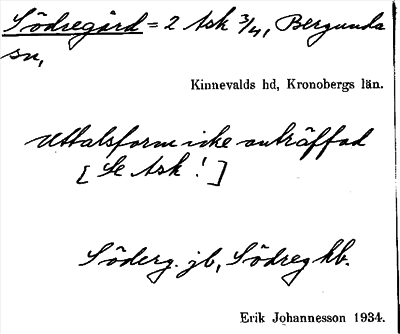 Södregård = 2 Ask 3/4, Bergunda
sn,
Kinnevalds hd, Kronobergs län.
Uttalsform icke anträffad
[Se Ask!]
Söderg. jb, Södreg kb.
Erik Johannesson 1934.